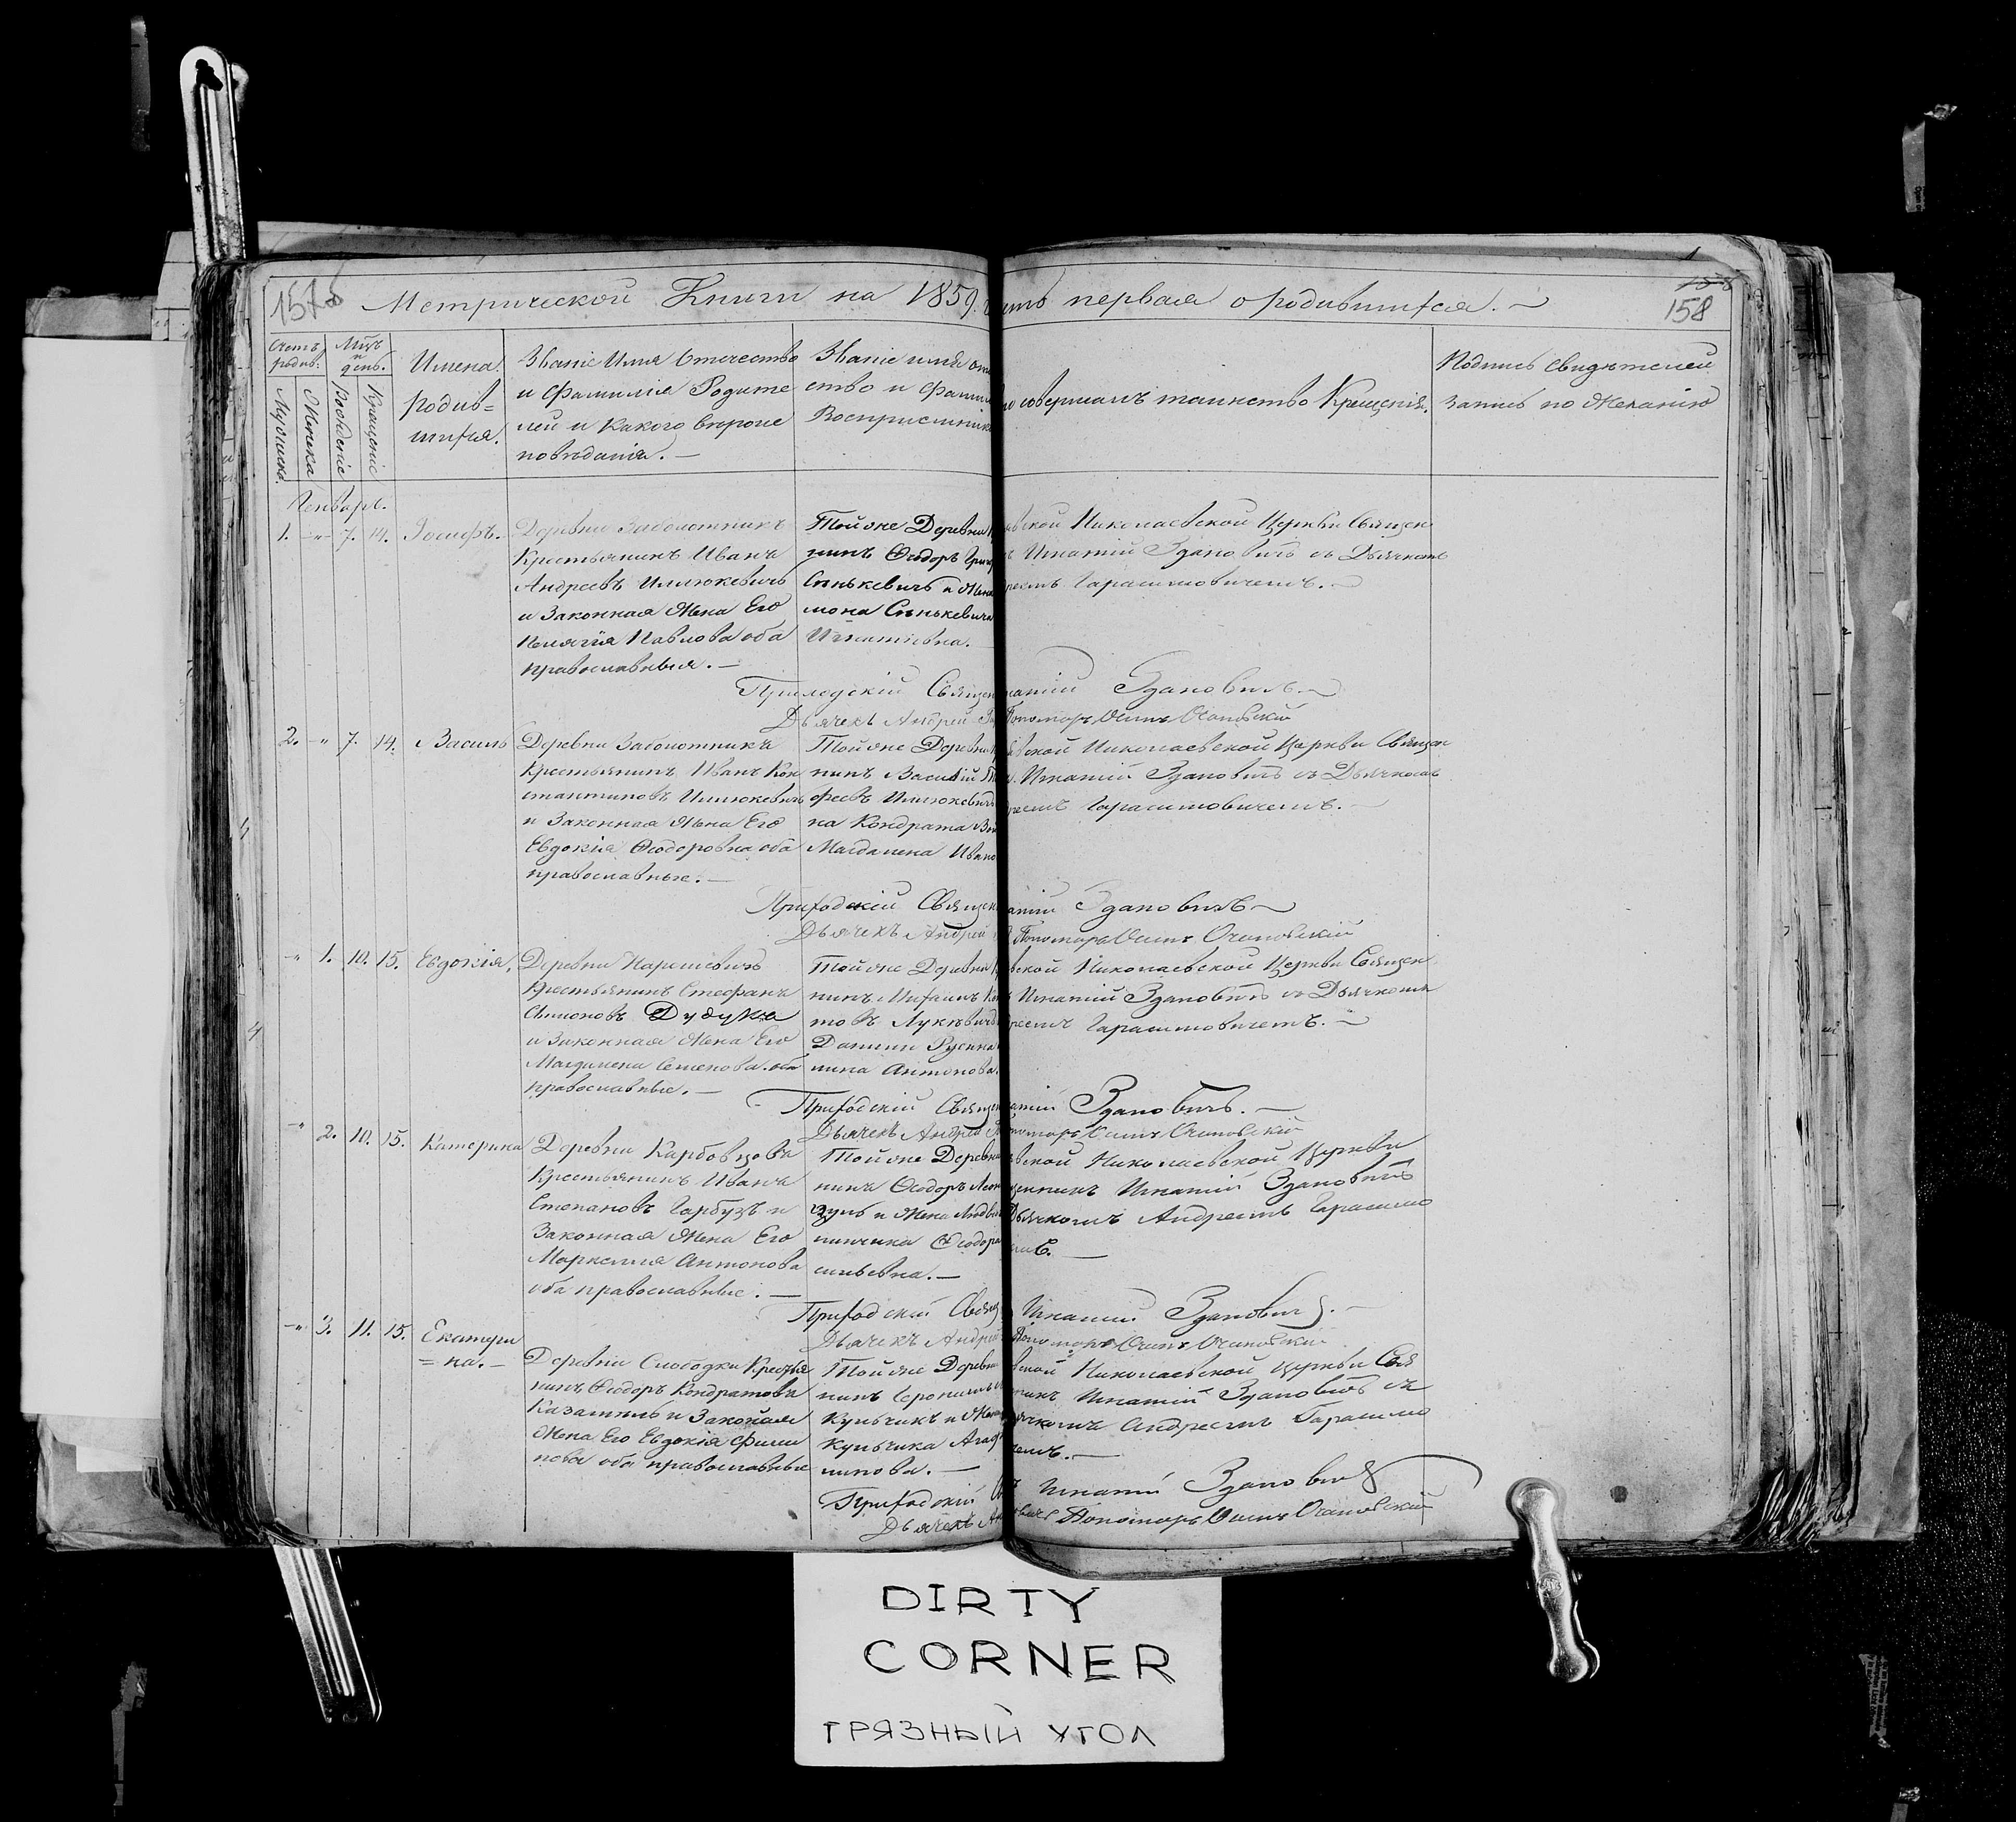 157об
158
Метрической Книги на 1859. первая о родившихся.
Счетъ родив:
Мцъ и день.
Мужеска.
Женска
Рожденіе
Крещеніе
Имена родив=
шихся.
Званіе Имя Отчество
и Фамилія Родите
лей и какого вѣроис
поведанія.
Званіе имя
ство и Фамил
Воспріемник
совершалъ таинство Крещенія.
Подпись свидѣтелей
запись по желанію
Генварь.
1. -"- 7. 14. Іосифъ.
Деревни Заболотникъ
Крестьянинъ Иванъ
Андреевъ Илилюкевичъ
и Законная Жена Его
Пелягія Павлова оба
православныя.
Той же Деревни
нинъ Ѳеодоръ Григ
Сенькевичъ и Жена
мона Сенькевича
Игнатіевна.
вской Николаевской Церкви Священ
Игнатій Здановичъ съ Дьячкомъ
реемъ Гарасимовичемъ.
Приходскій Священ
натій Здановичъ
Дьячекъ Андрей
Пономарь Осипъ
2. -"- 7. 14. Василь
Деревни Заболотникъ
Крестьянинъ Иванъ Кон
стантиновъ Илилюкевичъ
и Законная Жена Его
Евдокія Ѳеодоровна оба
православные.
Той же Деревни
нинъ Василій
феевъ Илилюкевичъ
на Кондрата
Магдалена Ивано
вской Николаевской Церкви Священ
Игнатій Здановичъ съ Дьячкомъ
реемъ Гарасимовичемъ.
Приходскій Священ
натій Здановичъ
Дьячекъ Андрей
Пономарь Осипъ
-"- 1. 10. 15. Евдокія.
Деревни
Крестьянинъ Стефанъ
Симоновъ Дудука
и Законная Жена Его
Магдалена Семенова оба
православные.
Той же Деревни
нинъ Михаилъ
товъ Лукѣвичъ
Данили Русина
нина Антонова.
вской Николаевской Церкви Священ
Игнатій Здановичъ съ Дьячкомъ
реемъ Гарасимовичемъ.
Приходскій Священ
натій Здановичъ.
Дьячекъ Андрей
Осипъ
-"- 2. 10. 15. Катерина
Деревни Карбовцовъ
Крестьянинъ Иванъ
Степановъ Гарбузъ и
Законная Жена Его
Маркелля Антонова
оба православные.
Той же Деревни
нинъ Ѳеодоръ Леон
и Жена
Ѳеодора
сильевна.
вской Николаевской Церкви
щенникъ Игнатій Здановичъ
Дьячкомъ Андреемъ Гарасимо
Приходскій Священ
Игнатій Здановичъ.
Дьячекъ Андрей
Пономарь Осипъ
-"- 3. 11. 15. Екатери
=на.
Деревни Слободки Крестья
нинъ Ѳеодоръ Кондратовъ
и Законная
Жена Его Евдокія Фили
пова оба православные
Той же Деревни
нинъ Іеронимъ
Кульчикъ и Жена
Кульчика Агаф
липова.
вской Николаевской Церкви Свя
никъ Игнатій Здановичъ съ
ячкомъ Андреемъ Гарасимо
чемъ.
Приходскій
Игнатій Здановичъ
Дьячекъ
Пономарь Осипъ
DIRTY
CORNER
ГРЯЗНЫЙ УГОЛ